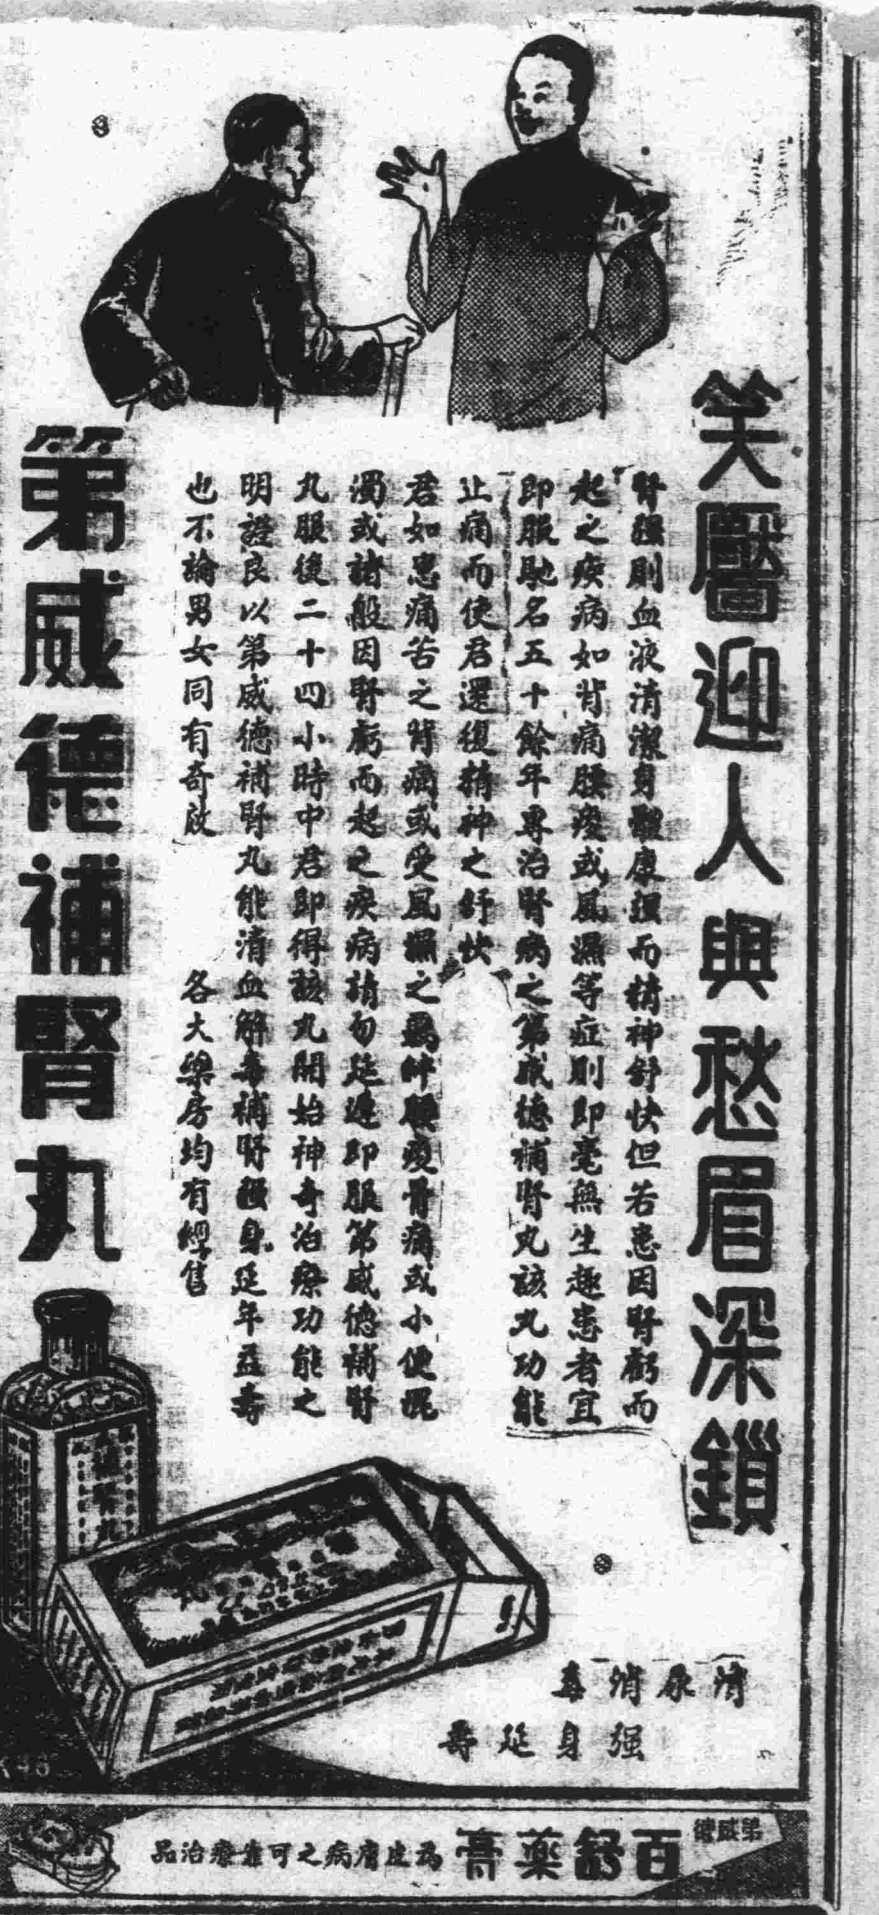 笑靨迎人與愁眉深鎖
腎强則血液清潔身體康强而精神舒快但若患因腎虧而
起之疾病如背痛腰痠或風濕等症則即毫無生趣患者宜
即服馳名五十餘年專治腎病之第威德補腎丸該丸功能
止痛而使君還復精神之舒快
君如患痛苦之背痛或受風濕之腰痠骨痛或小便混
濁或諸般因腎虧而起之疾病請勿延遲即服第威德補腎
丸服後二十四小時中君即得該丸開始神奇治療功能之
明證良以第威德補腎丸能清血解毒補腎强身延年益壽
也不論男女同有奇效
各大藥房均有經售
第威德補腎丸
補腎丸
清尿消毒
强身延壽
第威德
百舒藥膏
為皮膚病之可靠療治品